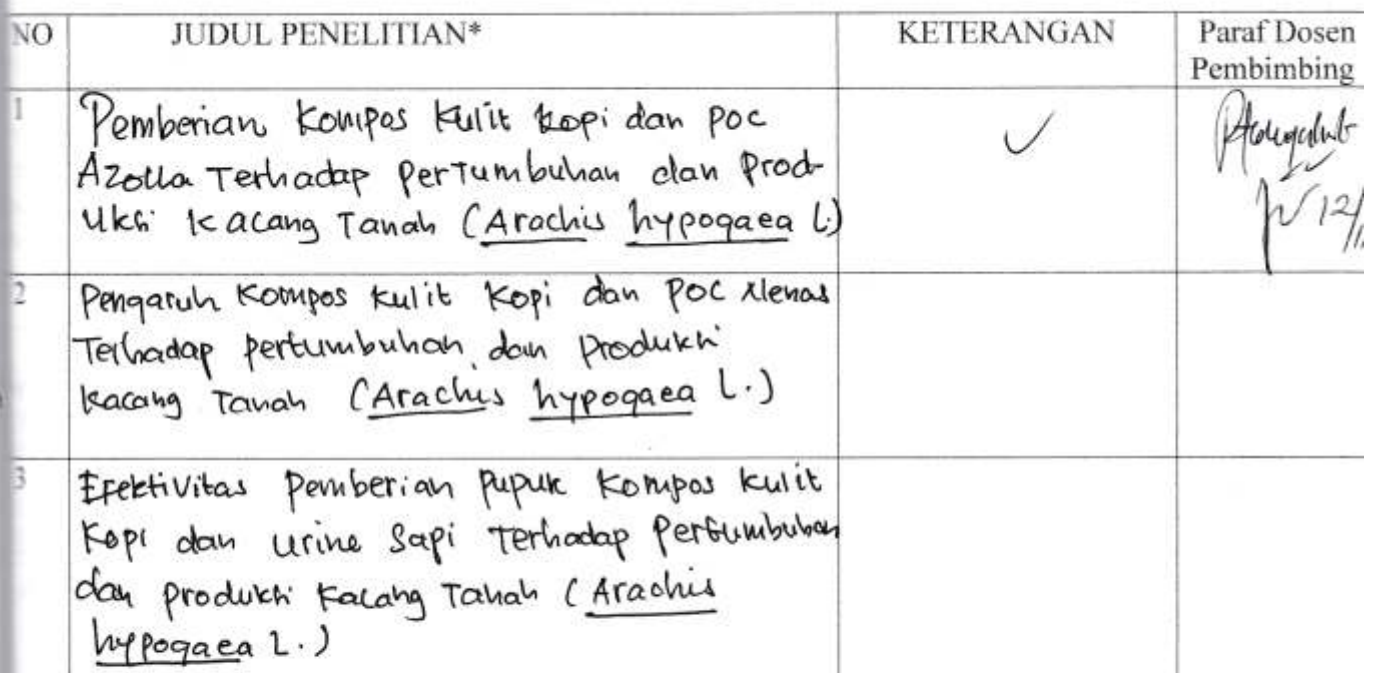 NO JUDUL PENELITIAN* KETERANGAN Paraf Dosen
Pembimbing
1 Pemberian Kompos Kulit Kopi dan POC
Azolla Terhadap Pertumbuhan dan Prod-
uksi Kacang Tanah (Arachis hypogaea L.)
12/
2 Pengaruh Kompos Kulit Kopi dan POC Nenas
Terhadap pertumbuhan dan Produksi
Kacang Tanah (Arachis hypogaea L.)
3 Efektivitas Pemberian Pupuk Kompos Kulit
Kopi dan Urine Sapi Terhadap Pertumbuhan
dan produksi Kacang Tanah (Arachis
hypogaea L.)